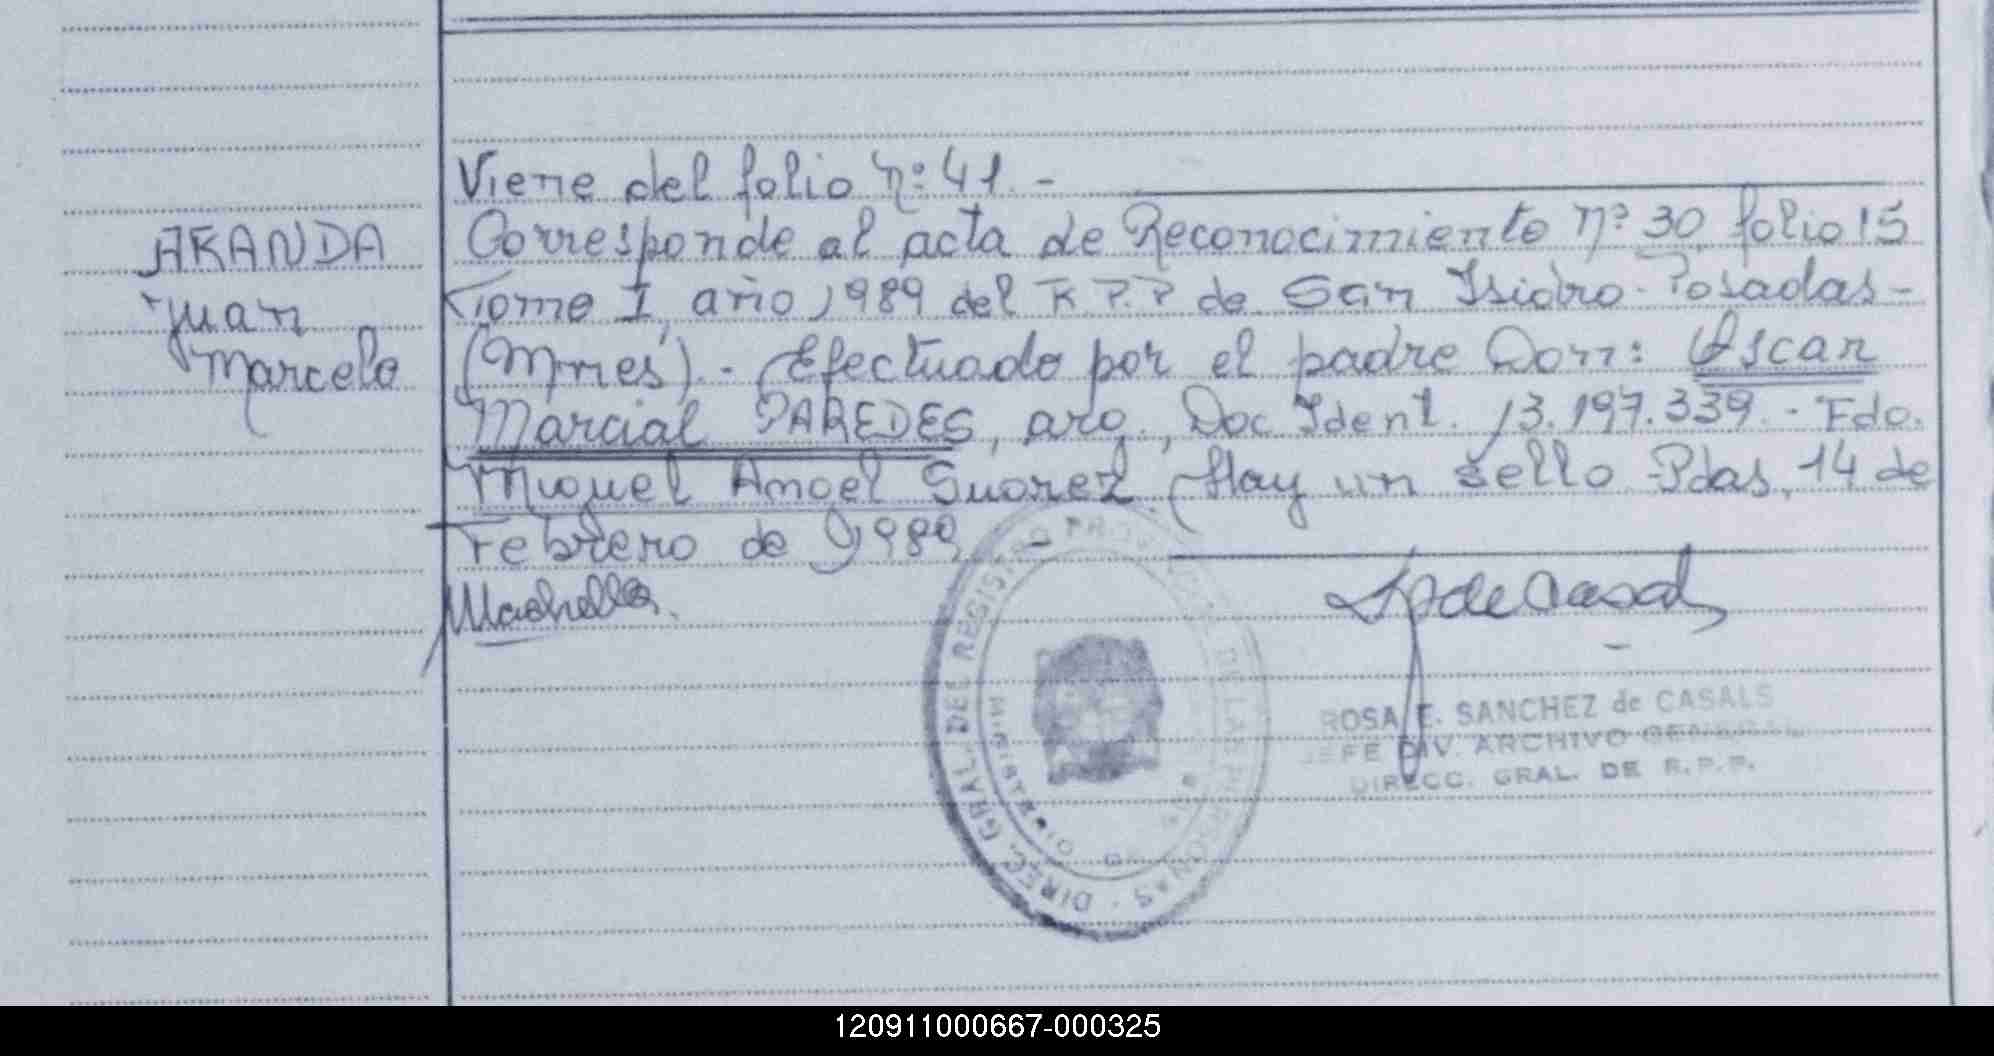 Viene del folio nº: 41. -
ARANDA
Juan
Marcelo
Corresponde al acta de Reconocimiento nº 30, folio 15
Tomo I, año 1989 del R.P.P de San Isidro - Posadas -
(Mnes). - Efectuado por el padre Don: Oscar
Marcial PAREDES, arg., Doc Ident. 13.197.339. - Fdo.
Miguel Angel Suarez. Hay un sello - Pdas, 14 de
Febrero de 1989 -
de Casals
DIREC. GRAL. DEL REGISTRO PROVINCIAL DE LAS PERSONAS
MINISTERIO DE
ROSA E. SANCHEZ de CASALS
JEFE DIV. ARCHIVO GENERAL
DIRECC. GRAL. DE R.P.P.
120911000667-000325